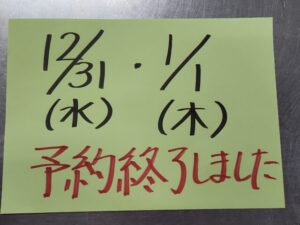 12/31・1/1
(水) (木)
予約終了しました